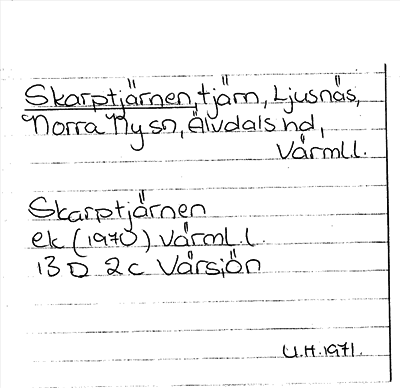 Skarptjärnen, tjärn, Ljusnäs,
Norra Ny sn, Älvdals hd,
Värml.l.
Skarptjärnen
ek (1970) Värml.l.
13 D 2c Vårsjön
U.H. 1971.